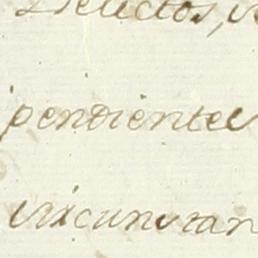 Delectos,
pendientes
circunstan